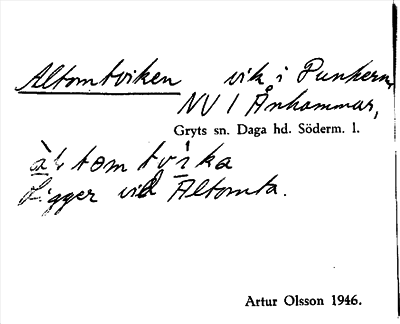 Altomtviken vik i Dunkern,
NV I Ånhammar,
Gryts sn. Daga hd. Söderm. l.
tom
Ligger vid Altomta.
Artur Olsson 1946.